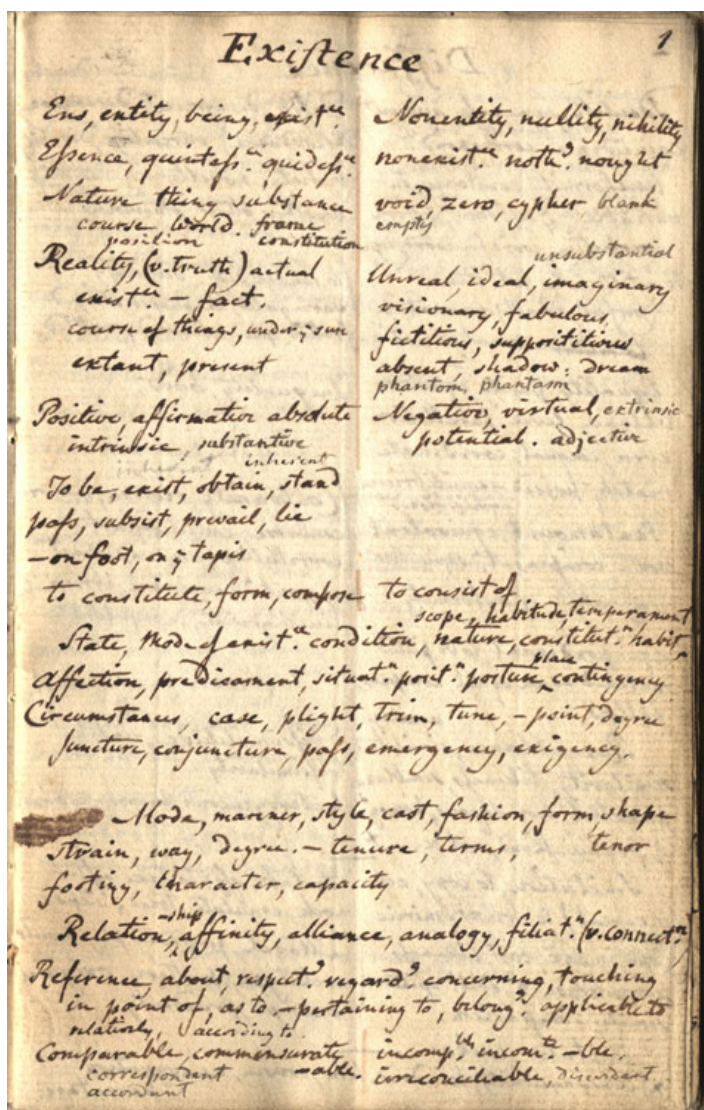 1
Existence
Ens, entity, being, exist.ce
Essence, quintess.ce quidess.ce
Nature thing substance
course, world. frame
position constitution
Reality, (v. truth) actual
exist.ce – fact.
course of things, under ye sun
extant, present
Positive, affirmative absolute
intrinsic, substantive
inherent inherent
To be, exist, obtain, stand
pass, subsist, prevail, lie
– on foot, on ye tapis
to constitute, form, compose
Nonentity, nullity, nihility
nonexist.ce noth.g nought
void, zero, cypher blank
empty
unsubstantial
Unreal, ideal, imaginary
visionary, fabulous,
fictitious, supposititious
absent, shadow; dream
phantom, phantasm
Negative, virtual, extrinsic
potential. adjective
to consist of
scope, habitude, temperament
State, Mode of exist.ce condition, nature, constitut.n habit,
place
Affection, predicament, situat.n posit.n posture, contingency
Circumstances, case, plight, trim, tune, – point, degree
Juncture, conjuncture, pass, emergency, exigency.
Mode, manner, style, cast, fashion, form, shape
strain, way, degree. – tenure, terms, tenor
footing, character, capacity
-ship
Relation, affinity, alliance, analogy, filiat.n (v. connect.n)
Reference, about, respect.g regard.g concerning, touching
in point of, as to – pertaining to, belong.g applicable to
relatively, according to
Comparable, commensurate
correspondent – able.
accordant
incomp.ble incom.te – ble.
irreconcilable, discordant,